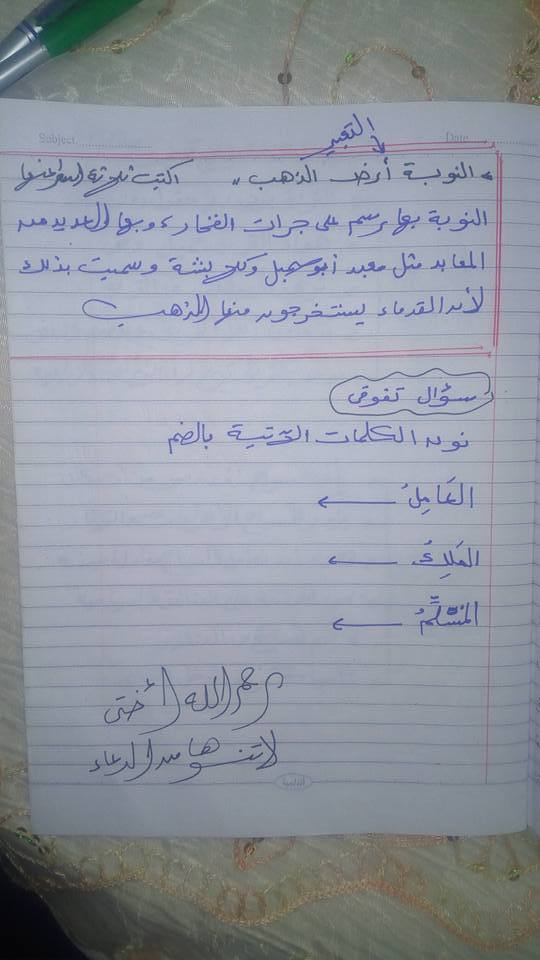 Subject
Date
التعبير
« النوبة أرض الذهب » اكتب ثلاثة أسطر عنها
النوبة بها رسم على جرات الفخار، وبها العديد من
المعابد مثل معبد أبو سمبل وكلابشة وسميت بذلك
لأن القدماء يستخرجون منها الذهب
سؤال تفوقى
نون الكلمات الآتية بالضم
العَامِلُ ←
المَلِكُ ←
المُسَّلِّمُ ←
رحم الله أختى
لا تنسوها من الدعاء